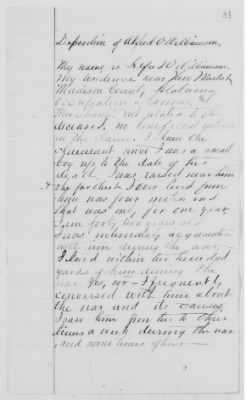 Deposition of Alfred O Williamson,
My name is Alfred O Williamson.
My residence near New Market
Madison County, Alabama
Occupation a Farmer,
not related to the
deceased, no beneficial interest
in the claim. I knew the
claimant since I was a small
boy up to the date of his
death I was raised near him
the farthest I ever lived from
him was four miles and
that was only for one year,
I am forty two years old
I was intimately acquainted
with him during the war,
I lived within two hundred
yards of him during the
war I frequently
conversed with him about
the war and its causes,
I saw him from two to three
times a week during the war
and some times oftener